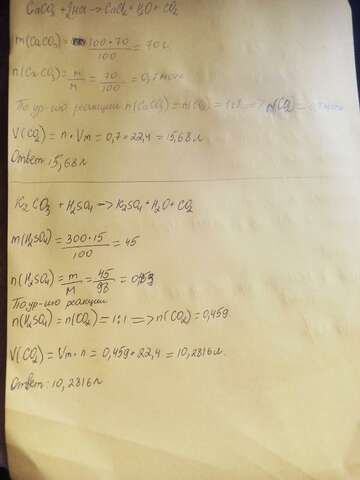 CaCO3 + 2HCl -> CaCl2 + H2O + CO2
m(CaCO3) = 100•70/100 = 70г
n(CaCO3) = m/M = 70/100 = 0,7 моль
По ур-ию реакции n(CaCO3) = n(CO2) = 1:1 => n(CO2) = 0,7 моль
V(CO2) = n • Vm = 0,7 • 22,4 = 15,68 л
Ответ: 15,68 л
K2CO3 + H2SO4 -> K2SO4 + H2O + CO2
m(H2SO4) = 300•15/100 = 45
n(H2SO4) = m/M = 45/98 = 0,459
По ур-ию реакции
n(H2SO4) = n(CO2) = 1:1 => n(CO2) = 0,459
V(CO2) = Vm • n = 0,459 • 22,4 = 10,2816 л
Ответ: 10,2816 л